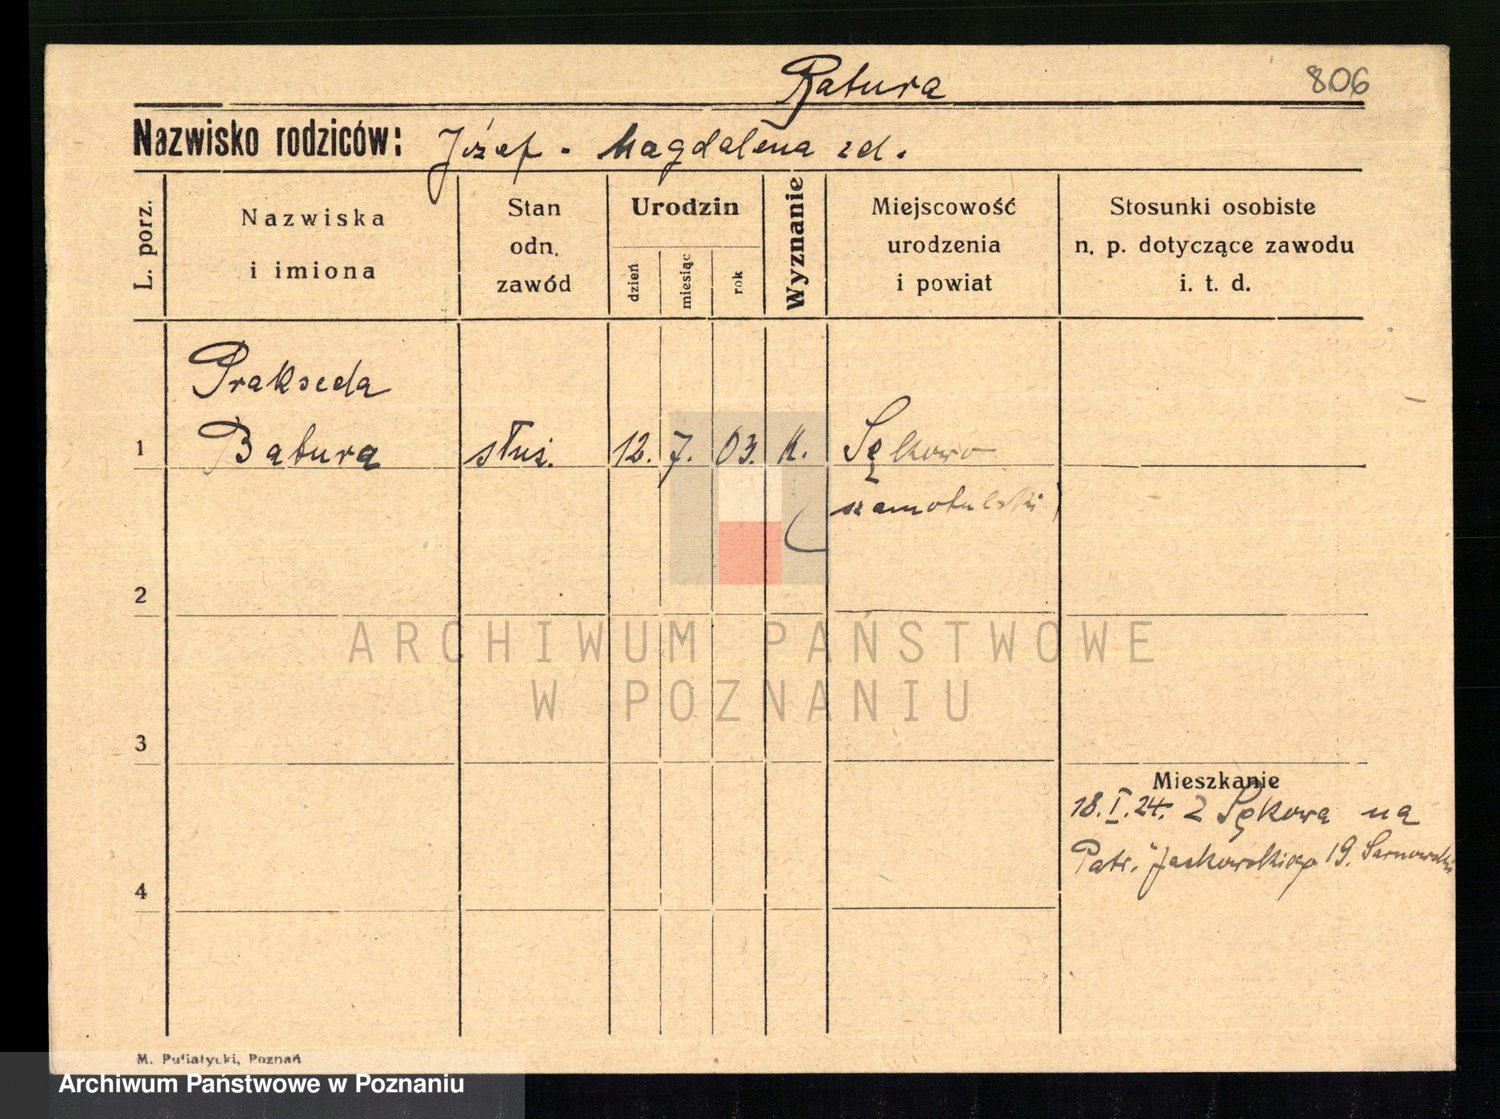 Batura
806
Nazwisko rodziców: Józef - Magdalena zd.
L. porz.
Nazwiska
i imiona
Stan
odn.
zawód
Urodzin
dzień
miesiąc
rok
Wyznanie
Miejscowość
urodzenia
i powiat
Stosunki osobiste
n. p. dotyczące zawodu
i. t. d.
Prakseda
1 Batura służ. 12. 7. 03. k. Sękowo
szamotulski
2
ARCHIWUM PAŃSTWOWE
W POZNANIU
3
Mieszkanie
18.I.24. z Sękowa na
Patr. Jackowskiego 19.
4
M. Putiatycki, Poznań
Archiwum Państwowe w Poznaniu